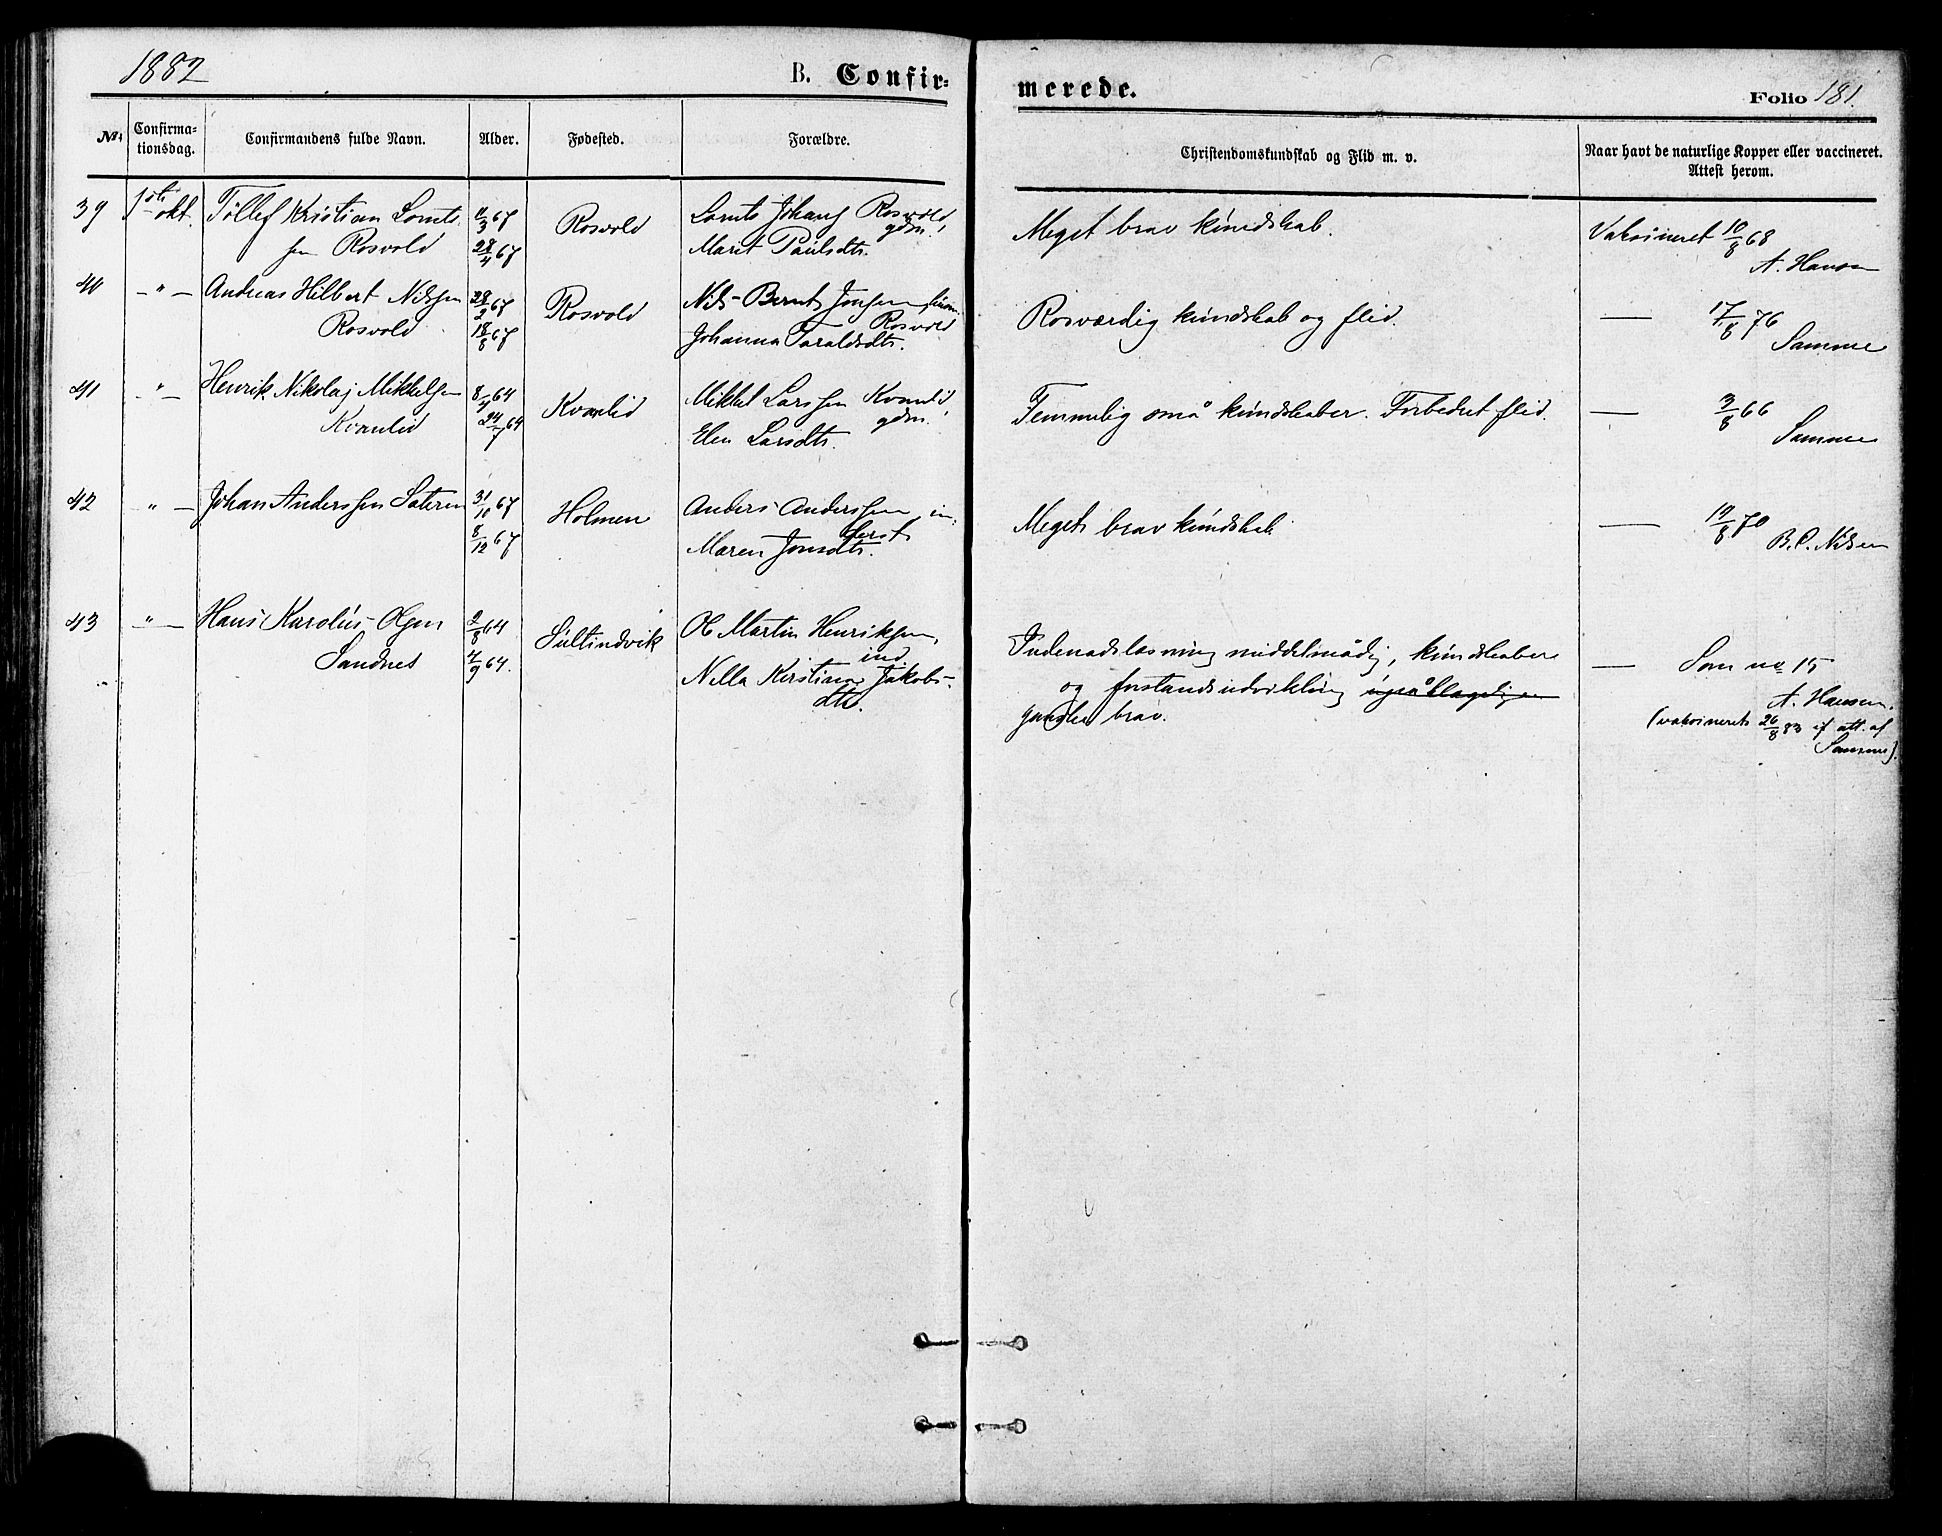 1882
B. Confir-
merede.
Folio 181.
No.
Confirma-
tionsdag.
Confirmandens fulde Navn.
Alder.
Fødested.
Forældre.
Christendomskundskab og Flid m. v.
Naar havt de naturlige Kopper eller vaccineret.
Attest herom.
39 1ste okt. Tollef Kristian Lornts
sen Rosvold
/3 67
28/4 67
Rosvold
Lornts Johans Rosvold
gdm.
Marit Paulsdtr.
Meget brav kundskab.
Vaksineret 10/8 68
A. Hansen
40 - " - Andreas Hilbert Nilssen
Rosvold
28/2 67
18/8 67
Rosvold
Nils Bernt Jonsen
Rosvold
Johanna Taraldsdtr.
Rosværdig kundskab og flid.
— 17/8 76
Samme
41 - " - Henrik Nikolaj Mikkelsen
Kvamlid
8/4 64
24/7 64
Kvamlid
Mikkel Larssen Kvamlid
gdm.
Elen Larsdtr.
Temmelig små kundskaber. Forbedret flid.
— 3/8 66
Samme
42 - " - Johan Anderssen Sateren
31/10 67
8/12 67
Holmen
Anders Anderssen, in-
derst
Maren Jonsdtr.
Meget brav kundskab.
— 19/8 70
B. C. Nilsen
43 - " - Hans Karolius Olsen
Sandnes
2/8 64
4/9 64.
Sultindvik
Ole Martin Henriksen,
ind
Nella Kirstina Jakobs-
dtr.
Indenadslæsning middelmådig, kundskaber
og forstandsudvikling
ganske brav.
— Som no 15
A. Hansen.
(vaksineret 26/8 83 if att. af
Samme).